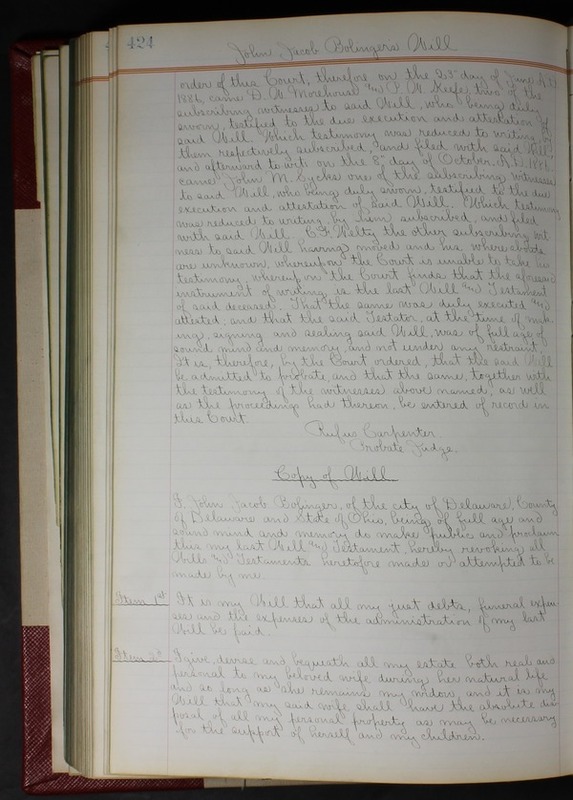 424
John Jacob Bolingers Will
order of this Court, therefore on the 23rd day of June A.D.
1886, came D. W. Morehouse and P. W. Keefe, two of the
subscribing witnesses to said Will, who being duly
sworn, testified to the due execution and attestation of
said Will. Which testimony was reduced to writing by
them respectively subscribed, and filed with said Will,
and afterward to wit: on the 8th day of October, A.D. 1886,
came John M. Sycks one of the subscribing witnesses
to said Will, who being duly sworn, testified to the due
execution and attestation of said Will. Which testimony
was reduced to writing, by him subscribed, and filed
with said Will. C. F. Welty the other subscribing wit
ness to said Will having moved and his where abouts
are unknown, whereupon the Court is unable to take his
testimony, whereupon the Court finds that the aforesaid
instrument of writing is the last Will and Testament
of said deceased. That the same was duly executed and
attested; and that the said Testator, at the time of mak-
ing, signing and sealing said Will, was of full age of
sound mind and memory and not under any restraint.
It is, therefore, by the Court ordered, that the said Will
be admitted to probate, and that the same, together with
the testimony of the witnesses above named, as well
as the proceedings had thereon, be entered of record in
this Court.
Rufus Carpenter
Probate Judge.
Copy of Will
I, John Jacob Bolinger, of the city of Delaware, County
of Delaware and State of Ohio, being of full age and
sound mind and memory do make public and proclaim
this my last Will and Testament, hereby revoking all
Wills and Testaments heretofore made or attempted to be
made by me.
Item 1st It is my Will that all my just debts, funeral expen
ses and the expenses of the administration of my last
Will be paid.
Item 2d I give, devise and bequeath all my estate both real and
personal to my beloved wife during her natural life
and so long as she remains my widow, and it is my
Will that my said wife shall have the absolute dis
posal of all my personal property as may be necessary
for the support of herself and my children.